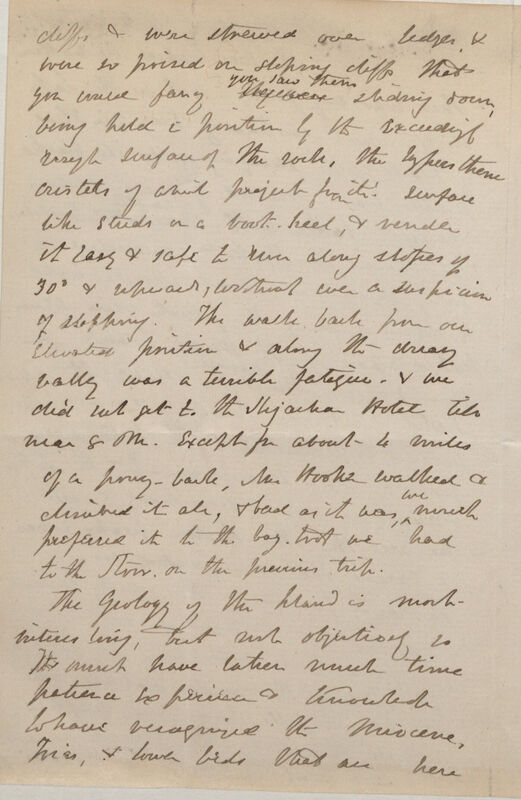 cliffs & were strewed over ledges, &
were so poised on sloping cliffs that
you would fancy you saw them sliding down,
being held i position by the exceedingly
rough surface of the rock, the hypersthene
cristals of which project from its surface
like studs on a boot-heel, & render
it easy & safe to run along slopes of
30° & upwards, without even a suspicion
of slipping. The walk back from our
elevated position & along the dreary
valley was a terrible fatigue. & we
did not get to the Sligachan Hotel till
near 8 PM. Except for about 4 miles
of a pony-back, Mrs Hooker walked &
climbed it all, & bad as it was, we much
preferred it to the bog-trot we had
to the Storr on the previous trip.
The Geology of the Island is most
interesting, but not objectively so
It must have taken much time
patience experience & knowledge
to have recognized the Miocene,
Trias, & lower beds that are here